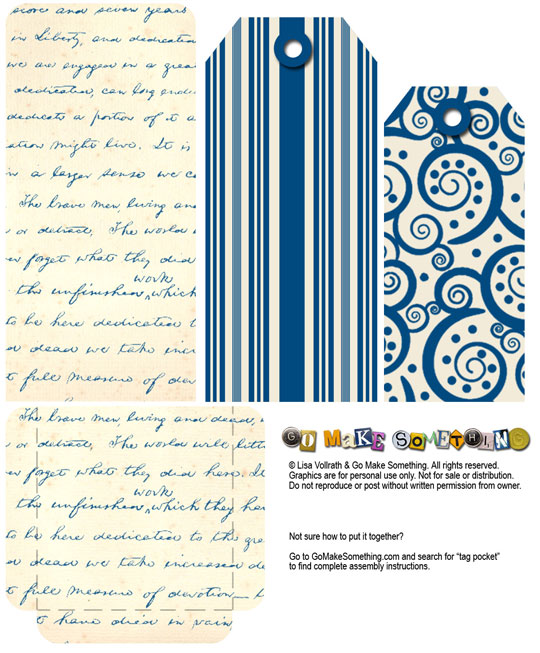 score and seven years
in Liberty, and dedication
we are engaged in a grea
dedication, can long endu
dedicate a portion of it a
ation might live. It is
in a larger sense we c
The brave men, living an
or detract. The world w
er forget what they did
work
the unfinished, which
to be here dedication t
d dead we take incr
t full measure of dev
The brave men, living and dead,
or detract. The world will littl
er forget what they did here. It
work
the unfinished, which they ha
to be here dedication to the gre
d dead we take increased de
t full measure of devotion—
to have died in vain,
GO MAKE SOMETHING
© Lisa Vollrath & Go Make Something. All rights reserved.
Graphics are for personal use only. Not for sale or distribution.
Do not reproduce or post without written permission from owner.
Not sure how to put it together?
Go to GoMakeSomething.com and search for “tag pocket”
to find complete assembly instructions.